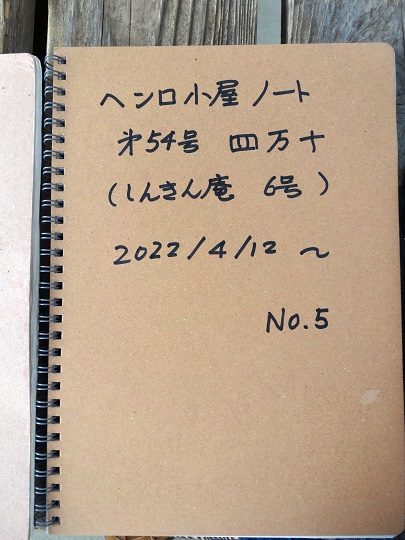 ヘンロ小屋 ノート
第54号 四万十
(しんきん庵 6号)
2022/4/12 ～
No.5